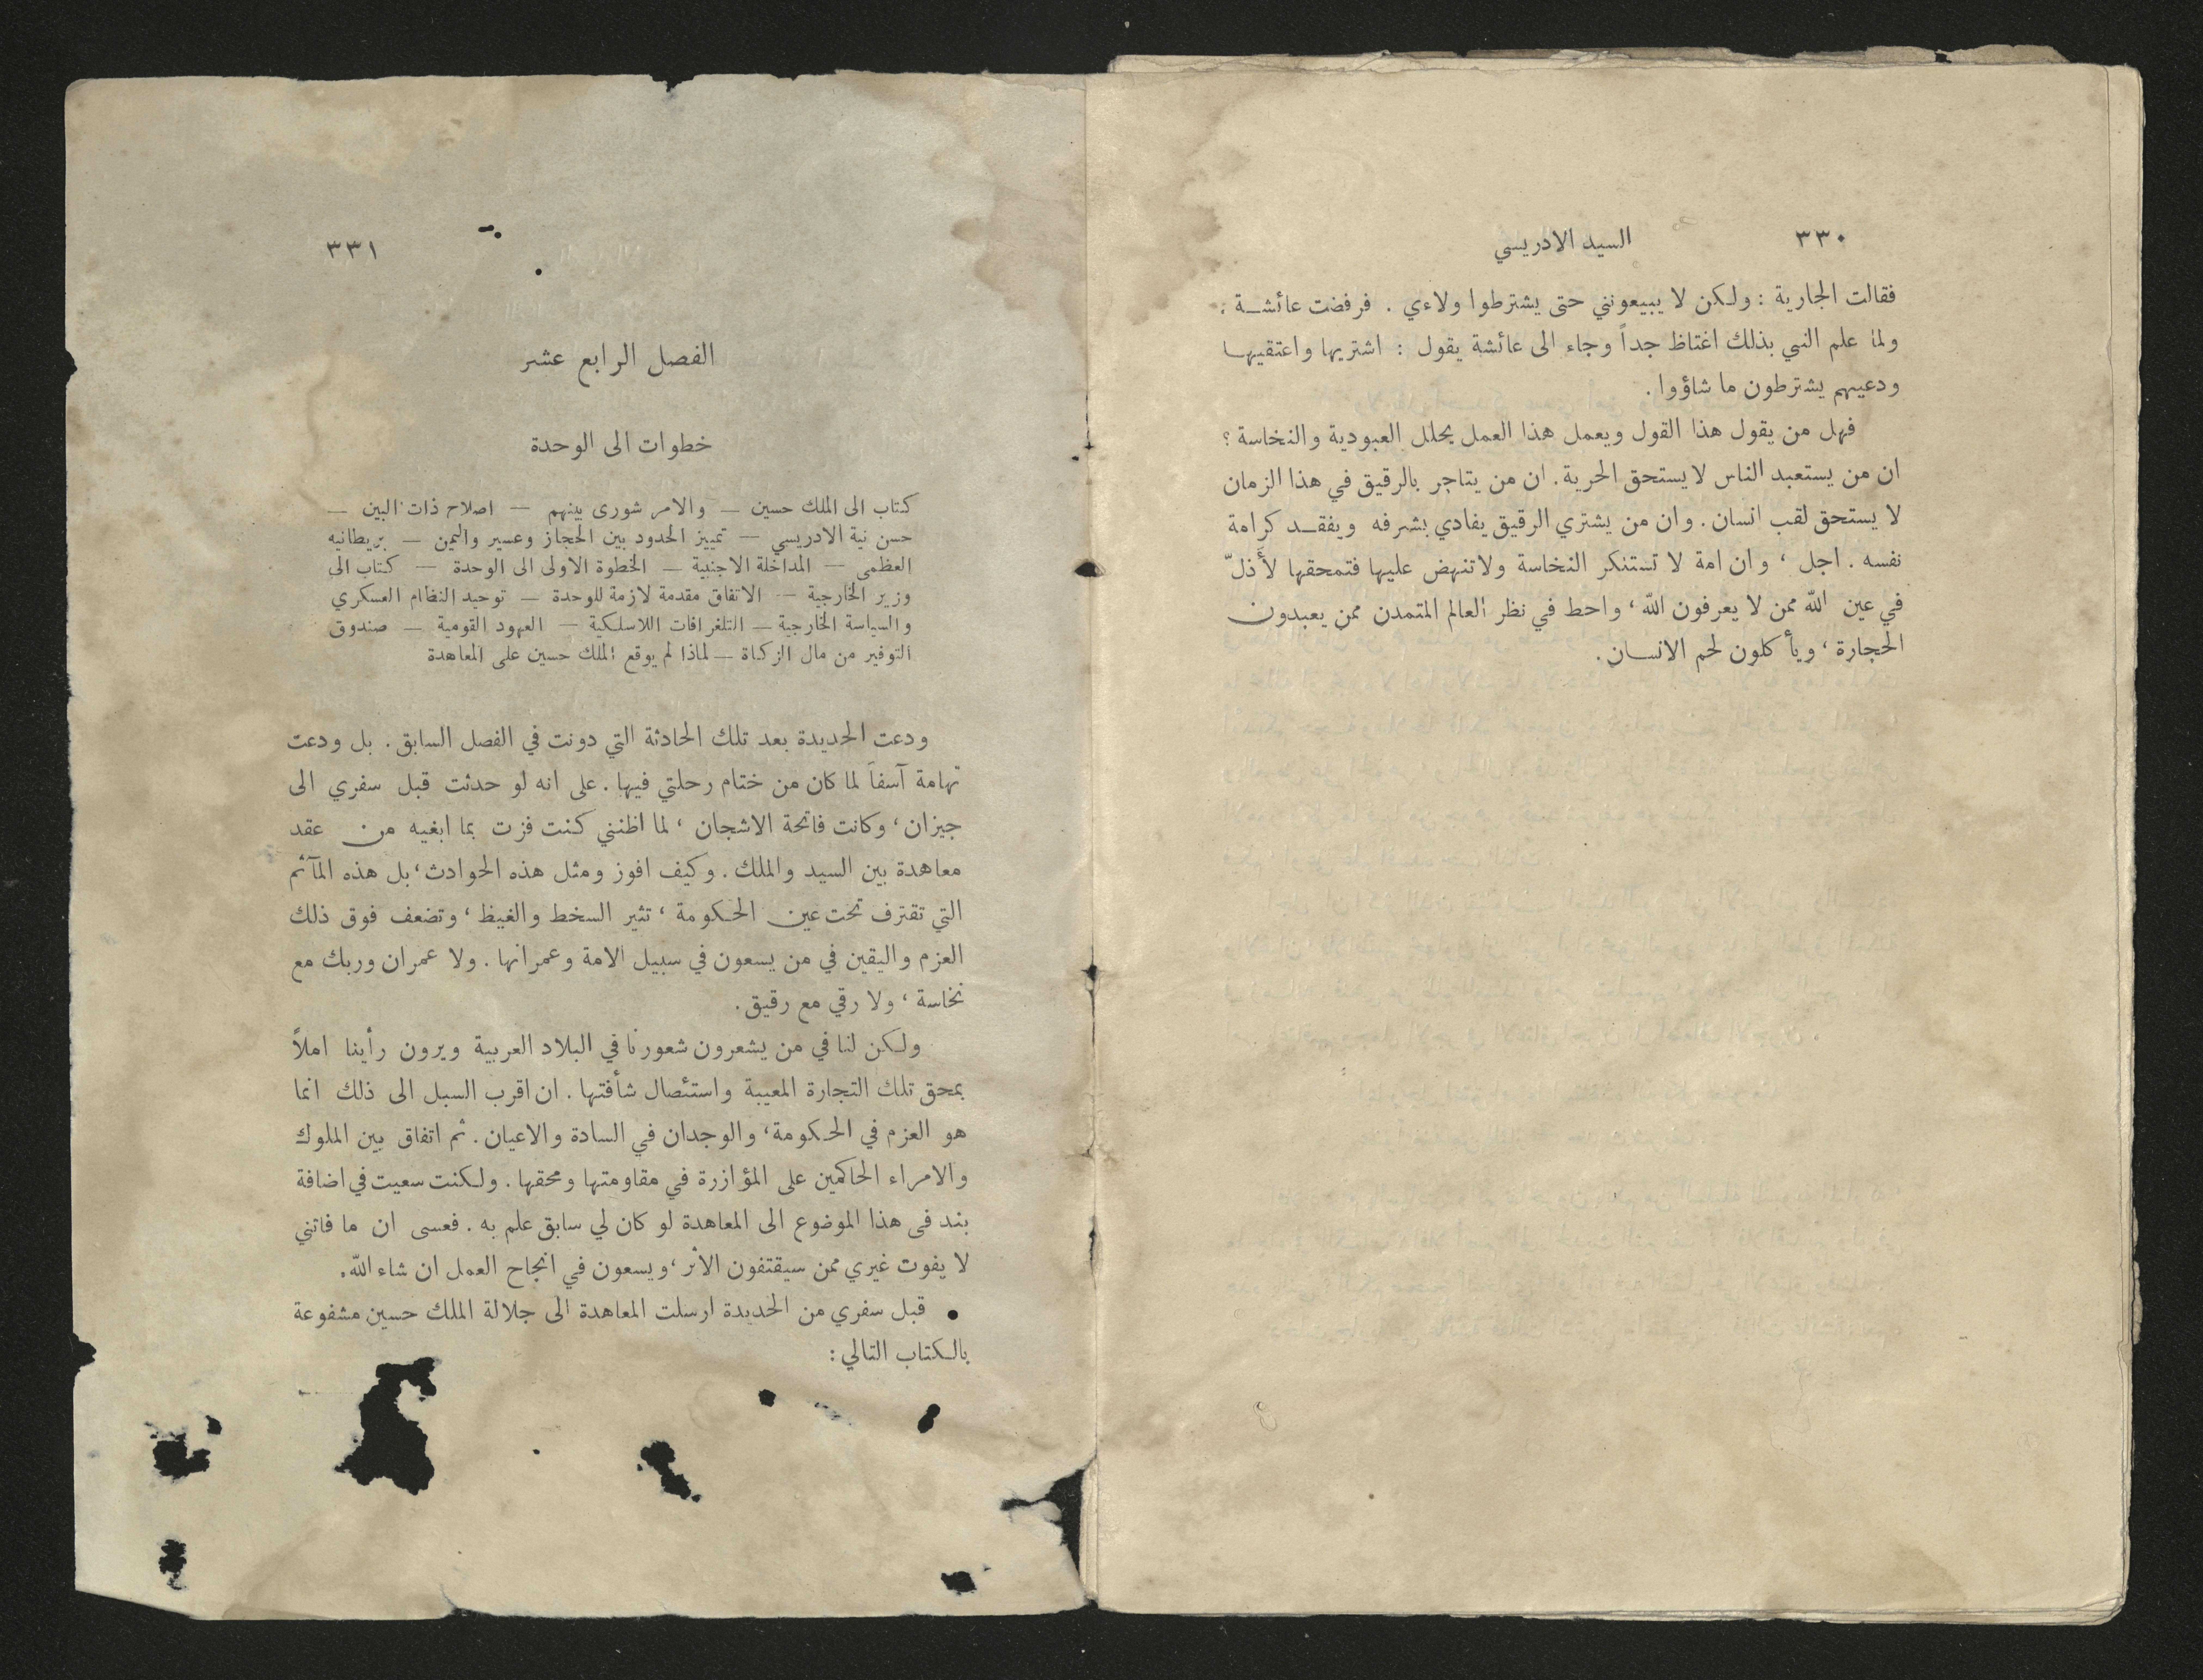 ٣٣٠
السيد الادريسي
فقالت الجارية : ولكن لا يبيعونني حتى يشترطوا ولاءي . فرفضت عائشة .
ولما علم النبي بذلك اغتاظ جداً وجاء الى عائشة يقول : اشتريها واعتقيها
ودعيهم يشترطون ما شاؤوا .
فهل من يقول هذا القول ويعمل هذا العمل يحلل العبودية والنخاسة ؟
ان من يستعبد الناس لا يستحق الحرية . ان من يتاجر بالرقيق في هذا الزمان
لا يستحق لقب انسان . وان من يشتري الرقيق يفادي بشرفه ويفقد كرامة
نفسه . اجل ، وان امة لا تستنكر النخاسة ولا تنهض عليها فتمحقها لأَذلّ
في عين الله ممن لا يعرفون الله ، واحط في نظر العالم المتمدن ممن يعبدون
الحجارة ، ويأكلون لحم الانسان .
٣٣١
الفصل الرابع عشر
خطوات الى الوحدة
كتاب الى الملك حسين — والامر شورى بينهم — اصلاح ذات البين —
حسن نية الادريسي — تمييز الحدود بين الحجاز وعسير واليمن — بريطانيه
العظمى — المداخلة الاجنبية — الخطوة الاولى الى الوحدة — كتاب الى
وزير الخارجية — الاتفاق مقدمة لازمة للوحدة — توحيد النظام العسكري
والسياسة الخارجية — التلغرافات اللاسلكية — العهود القومية — صندوق
التوفير من مال الزكاة — لماذا لم يوقع الملك حسين على المعاهدة
ودعت الحديدة بعد تلك الحادثة التي دونت في الفصل السابق . بل ودعت
تهامة آسفاً لما كان من ختام رحلتي فيها . على انه لو حدثت قبل سفري الى
جيزان ، وكانت فاتحة الاشجان ، لما اظنني كنت فزت بما ابغيه من عقد
معاهدة بين السيد والملك . وكيف افوز ومثل هذه الحوادث ، بل هذه المآثم
التي تقترف تحت عين الحكومة ، تثير السخط والغيظ ، وتضعف فوق ذلك
العزم واليقين في من يسعون في سبيل الامة وعمرانها . ولا عمران وربك مع
نخاسة ، ولا رقي مع رقيق .
ولكن لنا في من يشعرون شعورنا في البلاد العربية ويرون رأينا املاً
بمحق تلك التجارة المعيبة واستئصال شأفتها . ان اقرب السبل الى ذلك انما
هو العزم في الحكومة ، والوجدان في السادة والاعيان . ثم اتفاق بين الملوك
والامراء الحاكمين على المؤازرة في مقاومتها ومحقها . ولكنت سعيت في اضافة
بند في هذا الموضوع الى المعاهدة لو كان لي سابق علم به . فعسى ان ما فاتني
لا يفوت غيري ممن سيقتفون الأثر ، ويسعون في انجاح العمل ان شاء الله .
• قبل سفري من الحديدة ارسلت المعاهدة الى جلالة الملك حسين مشفوعة
بالكتاب التالي :